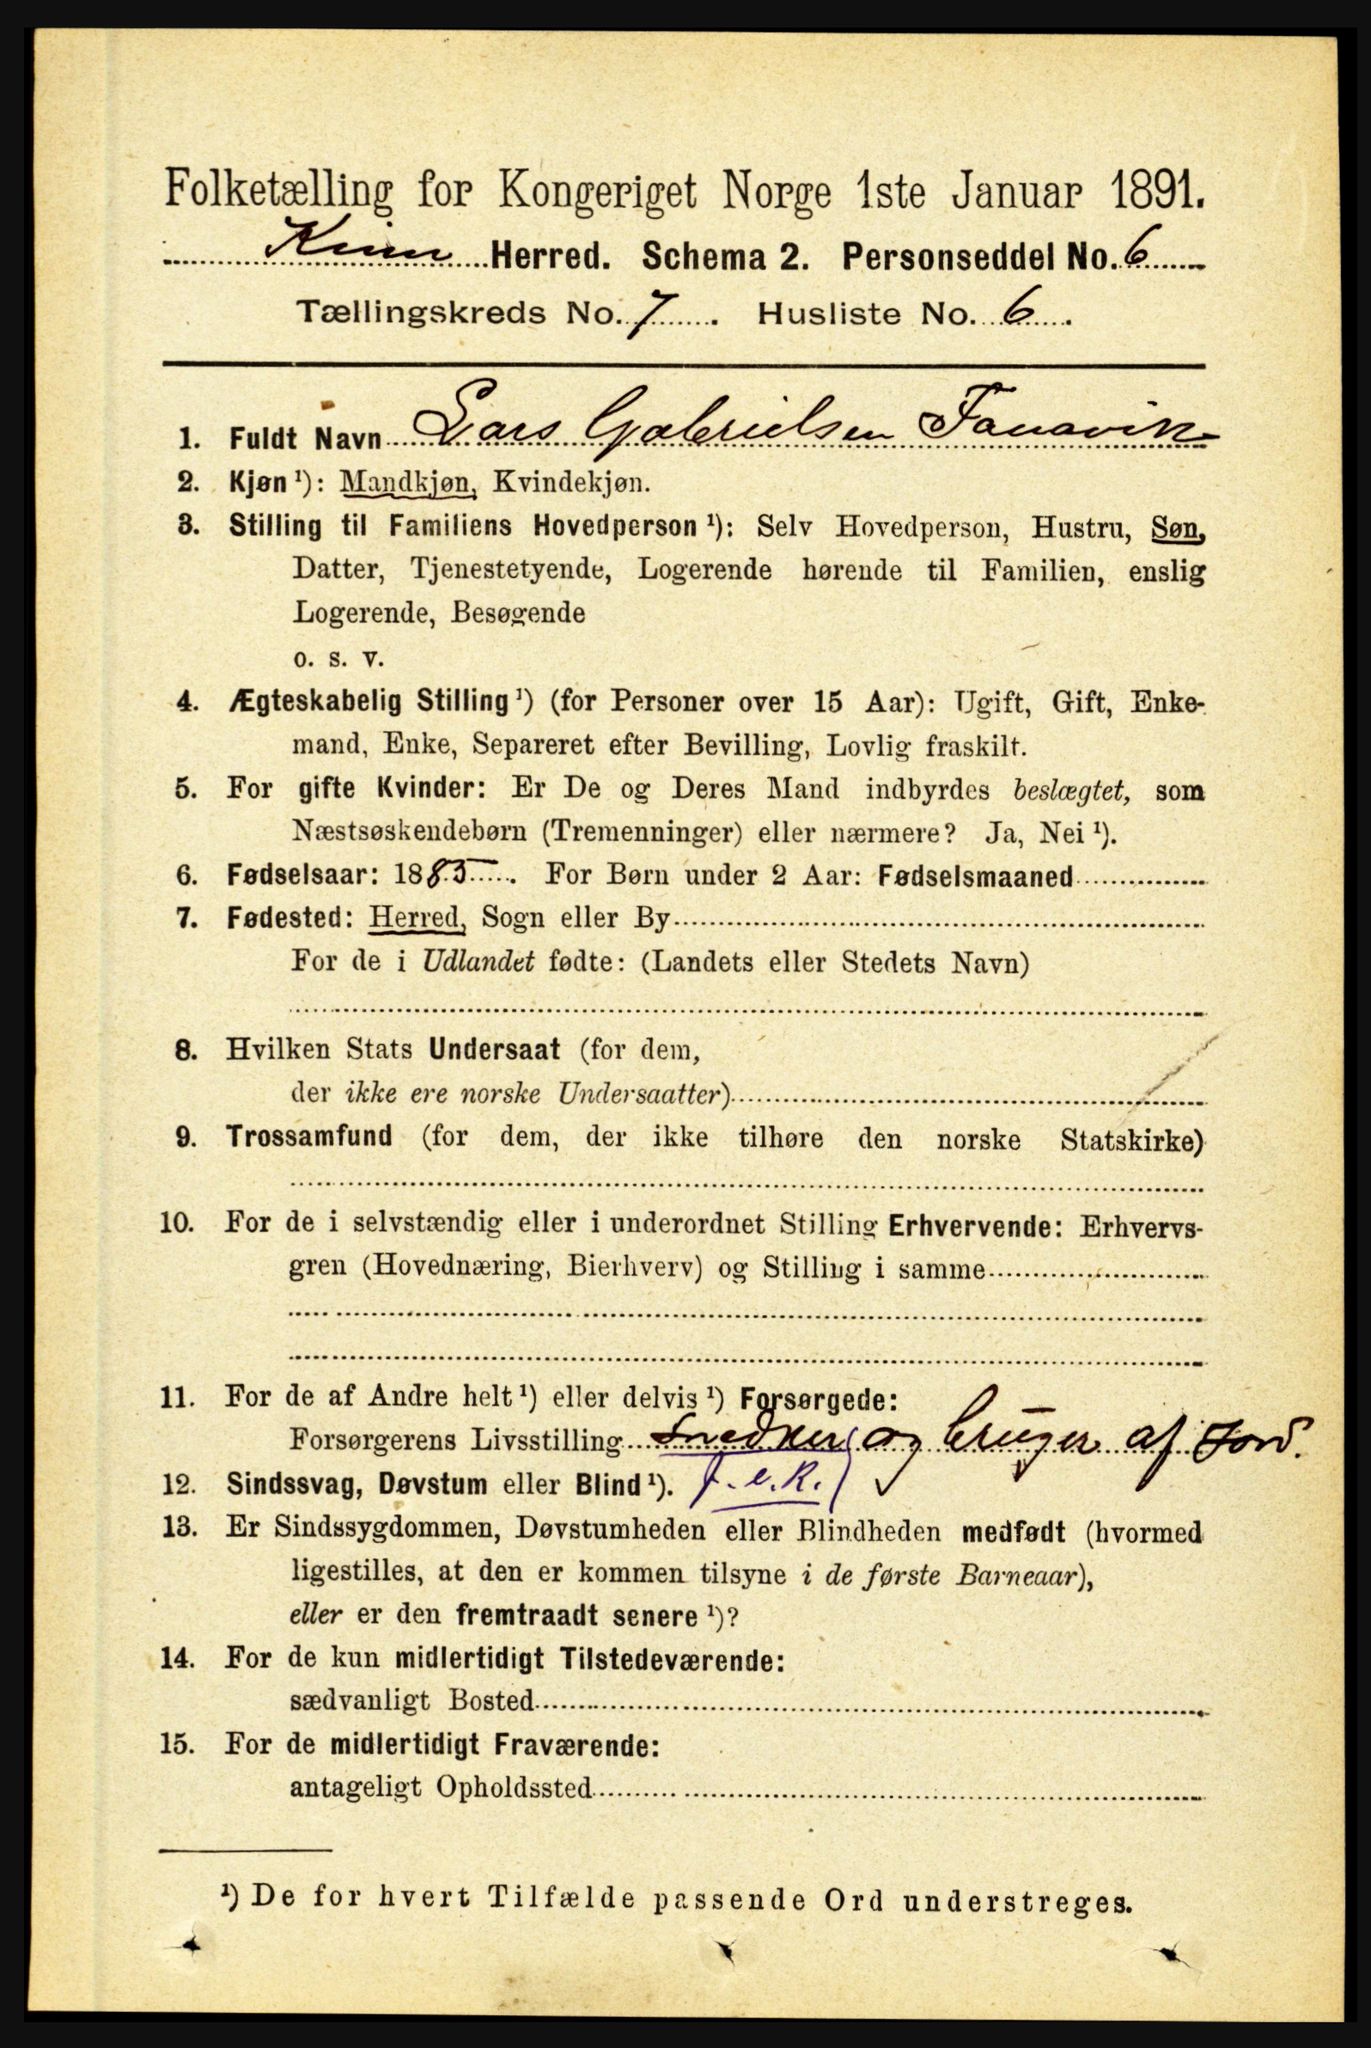 Folketælling for Kongeriget Norge 1ste Januar 1891.
Kinn Herred. Schema 2. Personseddel No. 6
Tællingskreds No. 7. Husliste No. 6.
1. Fuldt Navn Lars Gabrielsen Fanavik
2. Kjøn ¹): Mandkjøn, Kvindekjøn.
3. Stilling til Familiens Hovedperson ¹): Selv Hovedperson, Hustru, Søn,
Datter, Tjenestetyende, Logerende hørende til Familien, enslig
Logerende, Besøgende
o. s. v.
4. Ægteskabelig Stilling ¹) (for Personer over 15 Aar): Ugift, Gift, Enke-
mand, Enke, Separeret efter Bevilling, Lovlig fraskilt.
5. For gifte Kvinder: Er De og Deres Mand indbyrdes beslægtet, som
Næstsøskendebørn (Tremenninger) eller nærmere? Ja, Nei ¹).
6. Fødselsaar: 1885. For Børn under 2 Aar: Fødselsmaaned
7. Fødested: Herred, Sogn eller By
For de i Udlandet fødte: (Landets eller Stedets Navn)
8. Hvilken Stats Undersaat (for dem,
der ikke ere norske Undersaatter)
9. Trossamfund (for dem, der ikke tilhøre den norske Statskirke)
10. For de i selvstændig eller i underordnet Stilling Erhvervende: Erhvervs-
gren (Hovednæring, Bierhverv) og Stilling i samme
11. For de af Andre helt ¹) eller delvis ¹) Forsørgede:
Forsørgerens Livsstilling Snedker og bruger af Jord.
12. Sindssvag, Døvstum eller Blind ¹). f. e. R.
13. Er Sindssygdommen, Døvstumheden eller Blindheden medfødt (hvormed
ligestilles, at den er kommen tilsyne i de første Barneaar),
eller er den fremtraadt senere ¹)?
14. For de kun midlertidigt Tilstedeværende:
sædvanligt Bosted
15. For de midlertidigt Fraværende:
antageligt Opholdssted
¹) De for hvert Tilfælde passende Ord understreges.